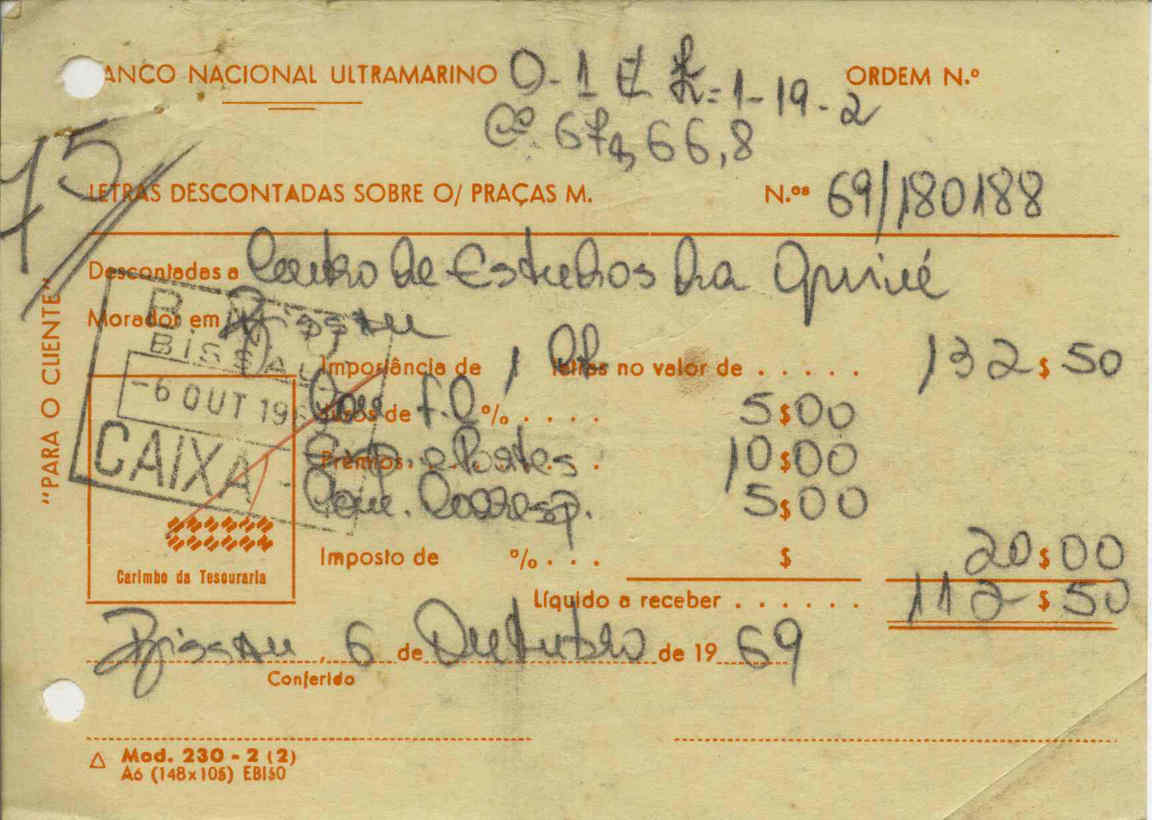 BANCO NACIONAL ULTRAMARINO
ORDEM N.º
£=1-19-2
66,8
75
LETRAS DESCONTADAS SOBRE O/ PRAÇAS M. N.ºs 69/180188
"PARA O CLIENTE"
Descontadas a Centro de Estudos da Guiné
Morador em Bissau
B N U
BISSAU
-6 OUT 196
CAIXA
Importância de 1 letras no valor de . . . . . 132$50
Juros de % . . . . 5$00
Com.
Prémios . . . 10$00
Exp. e Portes
Com. Corresp. 5$00
Imposto de % . . . $ 20$00
Carimbo da Tesouraria
Líquido a receber . . . . . . 112$50
Bissau, 6 de Outubro de 1969
Conferido
△ Mod. 230 - 2 (2)
A6 (148x105) EBI50